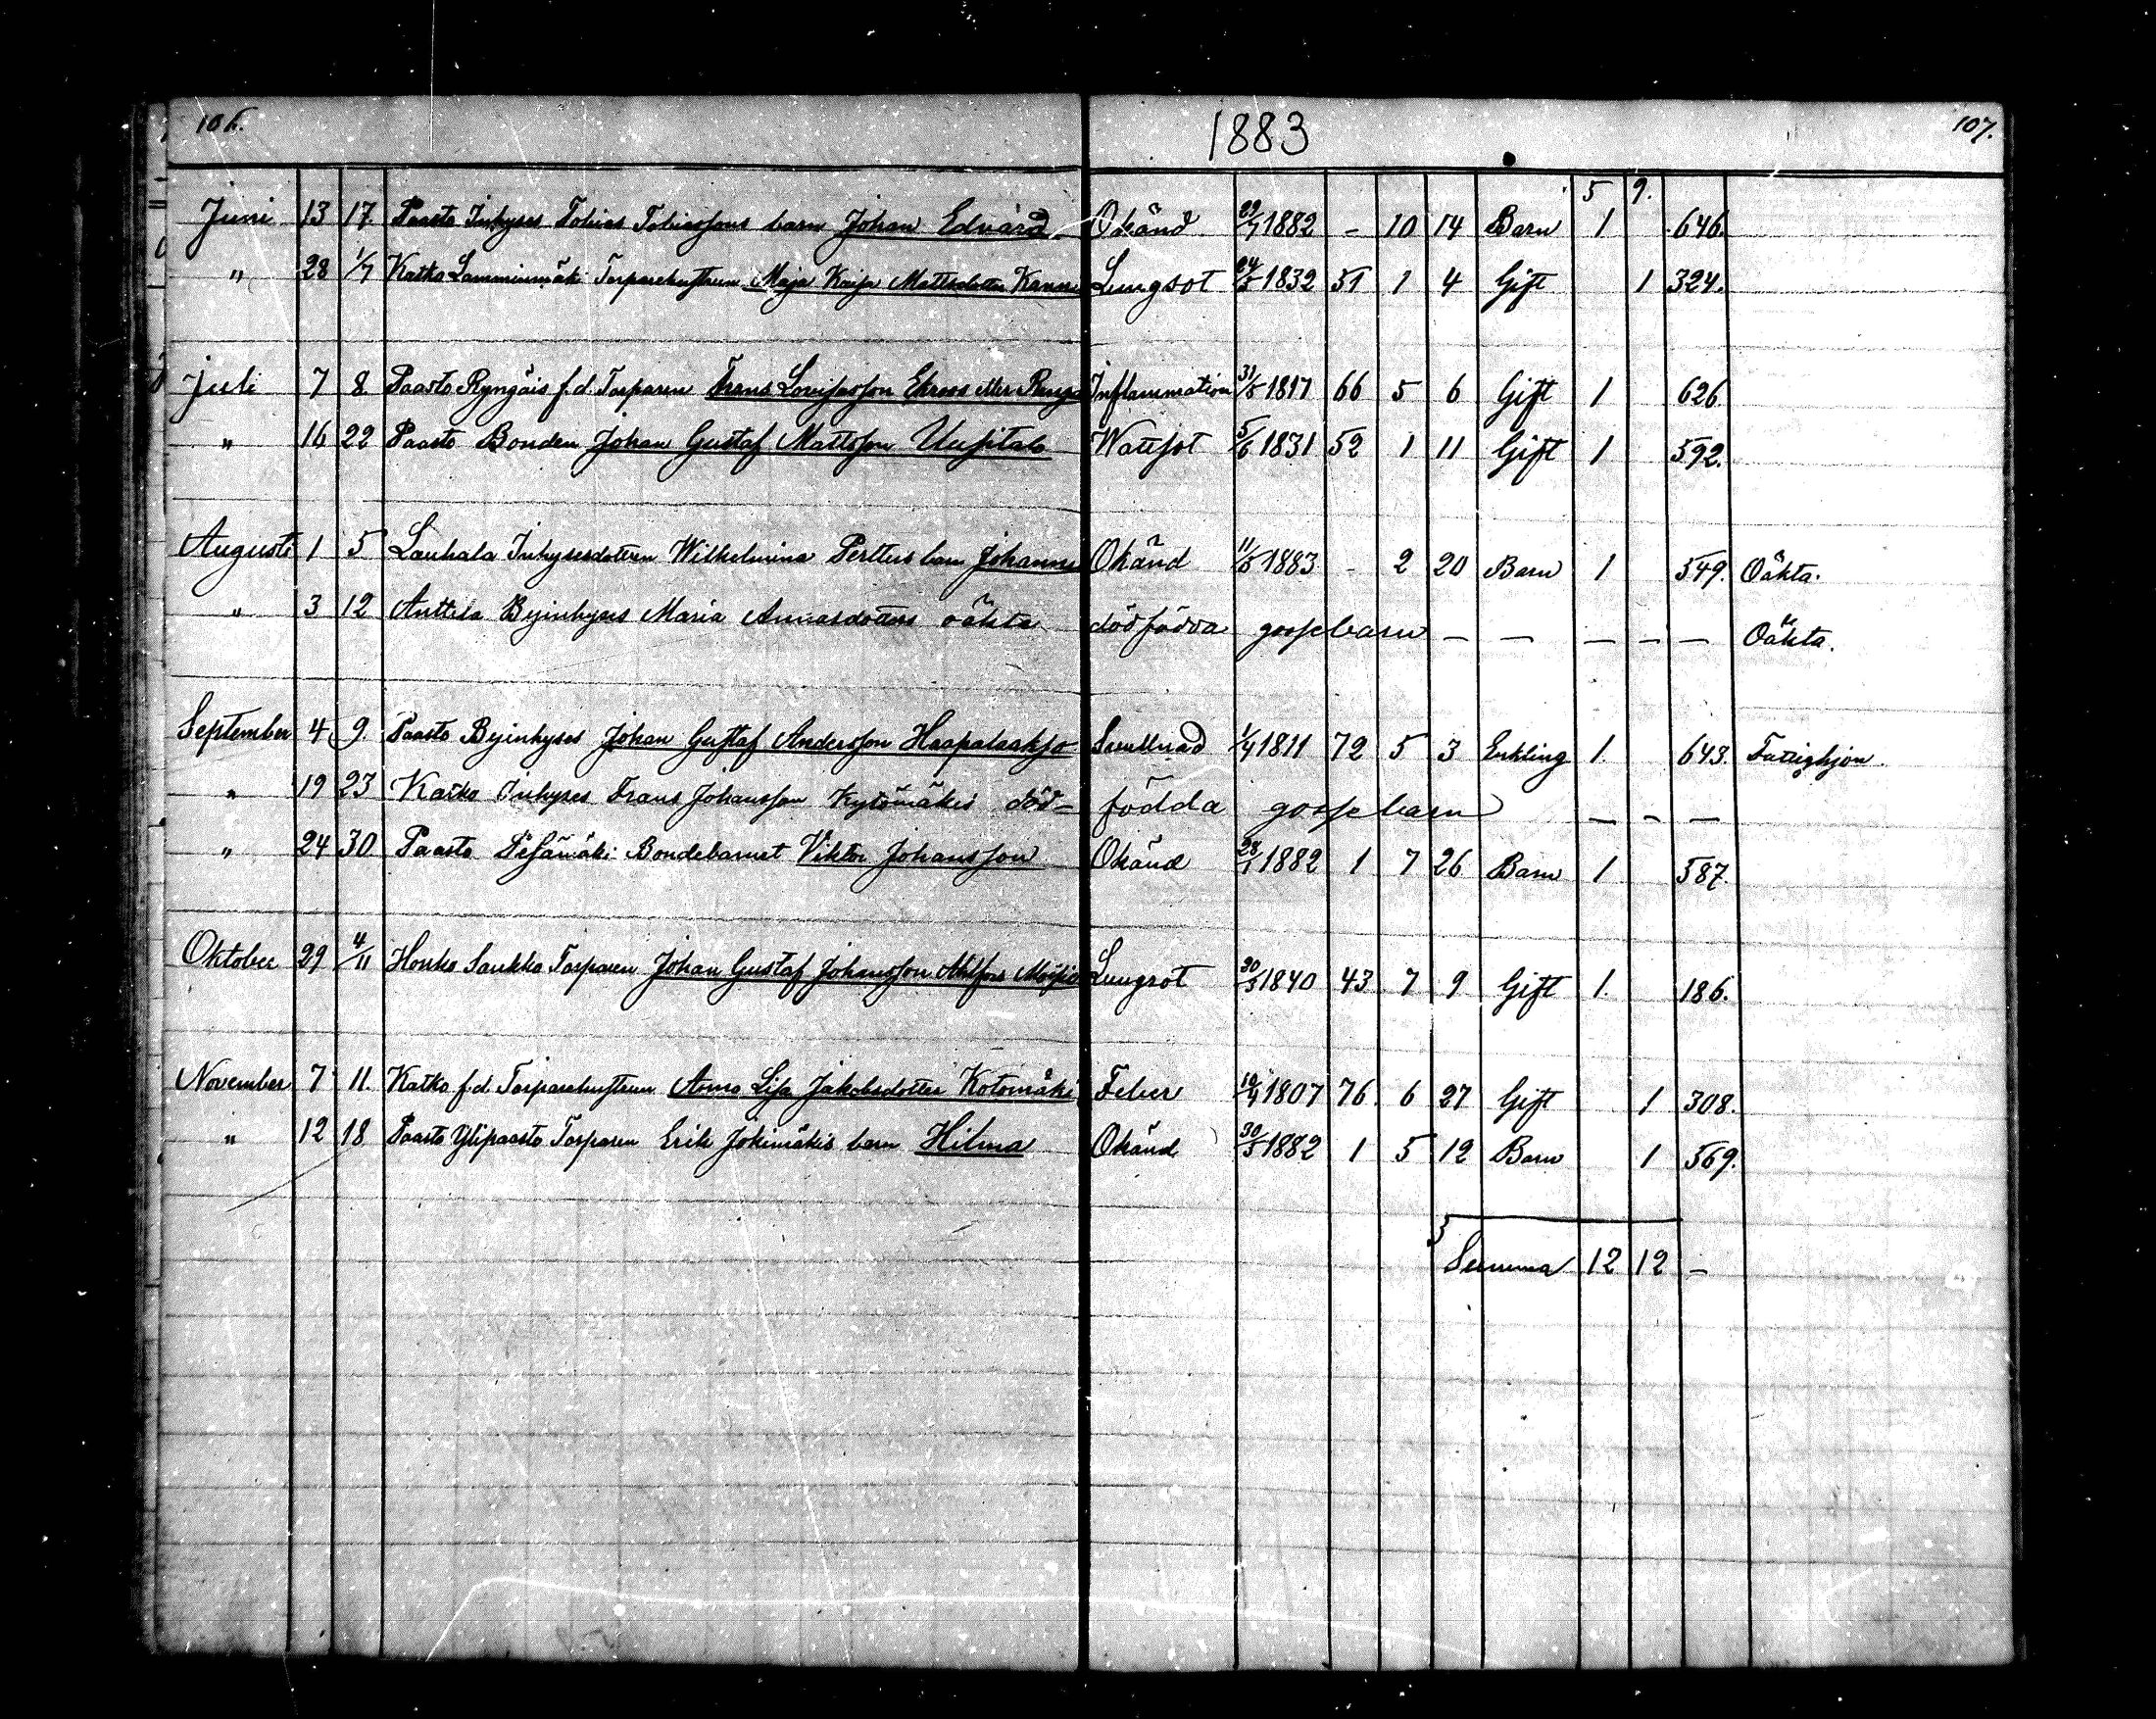 106.
1883
107.
5 9.
Juni 13 17. Paasto Inhyses Tobias Tobiassons barn Johan Edvard Okänd 29/7 1882 – 10 14 Barn 1 646.
" 28 1/7 Katko Lamminmäki Torparehustrun Maja Kaisa Mattsdotter Lungsot 24/5 1832 51 1 4 Gift 1 324.
Juli 7 8. Paasto Ryngöis f.d. Torparen Frans Lovisasson Inflammation 31/1817 66 5 6 Gift 1 626
" 16 22 Paasto Bonden Johan Gustaf Mattsson Uusitalo Wattsot 5/6 1831 52 1 11 Gift 1 592.
Augusti 1 5 Lauhala Inhysesdottren Wilhelmina Perttus barn Johannes Okänd 11/5 1883 – 2 20 Barn 1 549. Oäkta.
" 3 12 Anttila Byinhyses Maria Annasdotters oäkta dödfödda gossebarn – – – – – Oäkta.
September 4 9. Paasto Byinhyses Johan Gustaf Andersson Haapalaakso 1/4 1811 72 5 3 Enkling 1. 643. Fattighjon.
" 19 23 Katko Inhyses Frans Johansson Kytömäkis död= födda gossebarn – – –
" 24 30 Paasto Pesämäki Bondebarnet Viktor Johansson Okänd 28/1 1882 1 7 26 Barn 1 587.
Oktober 29 4/11 Honko Sankko Torparen Johan Gustaf Johansson Lungsot 20/3 1840 43 7 9 Gift 1. 186.
November 7 11. Katko f.d. Torparehustrun Anna Lisa Jakobsdotter Kotomäki Feber 10/4 1807 76. 6 27 Gift 1 308.
" 12 18 Paasto Ylipaasto Torparen Erik Jokimäkis barn Hilma Okänd 30/5 1882 1 5 12 Barn 1 569.
Summa 12 12 –